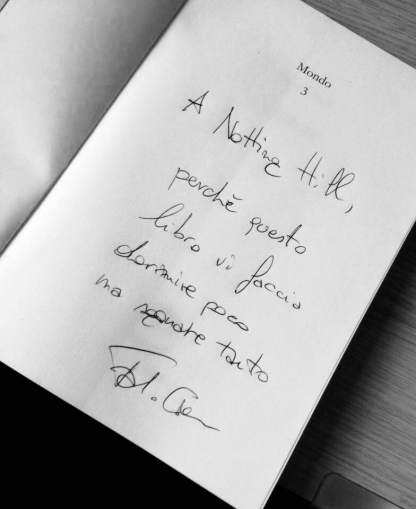 Mondo
3
A Notting Hill,
perchè questo
libro vi faccia
dormire poco
ma sognare tanto